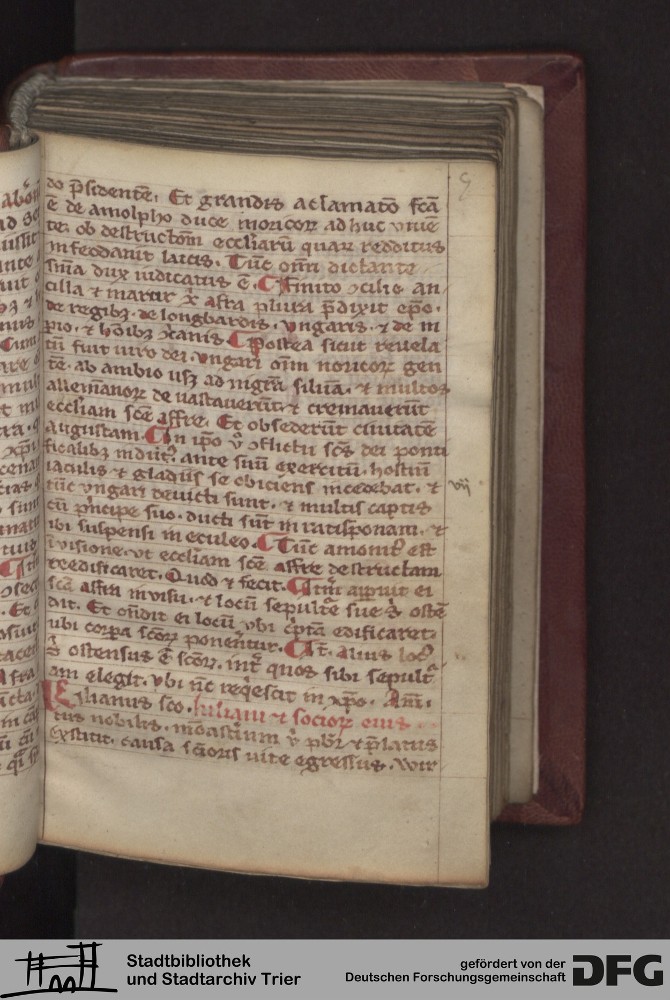 do p̄sidente. Et grandis aclamatō fc̄a
ē de arnolpho duce noricoꝝ ad huc viuē
te. ob destructōm eccl̄iarū quaꝝ redditus
infeodauit laicis. Tūc om̄i dictante
sn̄ia dux iudicatus ē. Finito ɔcilio an
cilla et martir x̄ afra plura p̄dixit ep̄o.
de regibꝫ. de longbardis. vngaris. et de in
pio. et hōibꝫ xanis. Postea sicut reuela
tū fuit viro dei. vngari om̄m noricoꝝ gen
tē. ab ambio vsꝫ ad nigrā siluā. et multos
allemānoꝝ deuastauerūt. et cremauerūt
eccl̄iam sc̄e affre. Et obsederūt ciuitatē
augustam. In ip̄o v̊ ɔflictu sc̄s dei ponti
ficalibꝫ indut᷒. ante suū exercitū. hostiū
iaculis et gladiis se obiciens incedebat. et
tūc vngari deuicti sunt. et multis captis
cū p̄ncipe suo. ducti sūt in ratisponam. et
ibi suspensi in eculeo. Tūc amonit᷒ est
ī visione. vt eccl̄iam sc̄e affre destructam
reedificaret. Quod et fecit. Itm̄ apparuit ei
sc̄a affra in visu. et locū sepultr̄e sue ei ostē
dit. Et on̄dit ei locū vbi cripta edificaret
vbi corpa sc̄oꝝ ponentur. It̄. alius loc᷒
ei ostensus ē sc̄oꝝ. int̄ quos sibi sepultr̄
am elegit. vbi nc̄ req̄escit in xp̄o. Am̄.
Kilianus sco. kiliani et socioꝝ eius
tus nobilis. monasteriū v̊ pbr̄ et p̄latus
exstitit. causa sc̄ioris vite egressus. wir
Stadtbibliothek
und Stadtarchiv Trier
gefördert von der
Deutschen Forschungsgemeinschaft
DFG